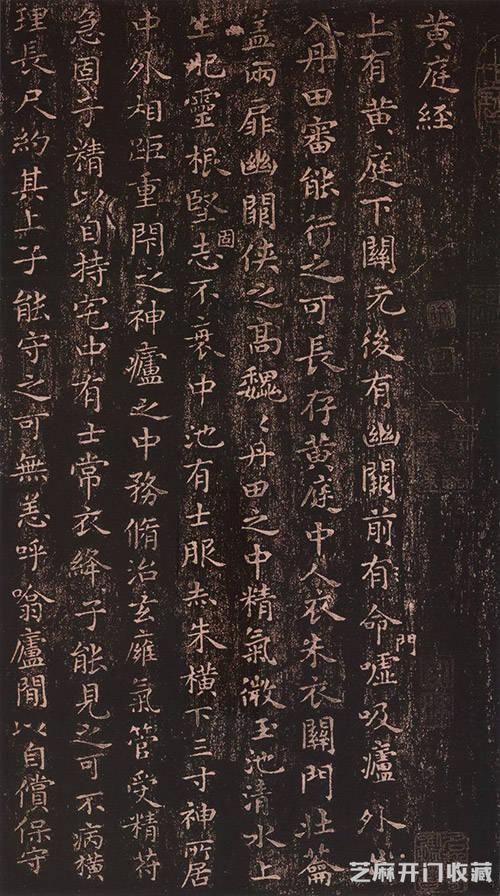 黄庭経
上有黄庭下關元後有幽闕前有命門噓吸廬外出
入丹田審能行之可長存黄庭中人衣朱衣關門壯蘥
蓋兩扉幽闕俠之高魏〻丹田之中精氣微玉池清水上
生肥靈根堅固志不衰中池有士服赤朱横下三寸神所居
中外相距重閇之神廬之中務脩治玄癰氣管受精符
急固子精以自持宅中有士常衣絳子能見之可不病横
理長尺約其上子能守之可無恙呼噏廬閒以自償保守
芝麻开门收藏